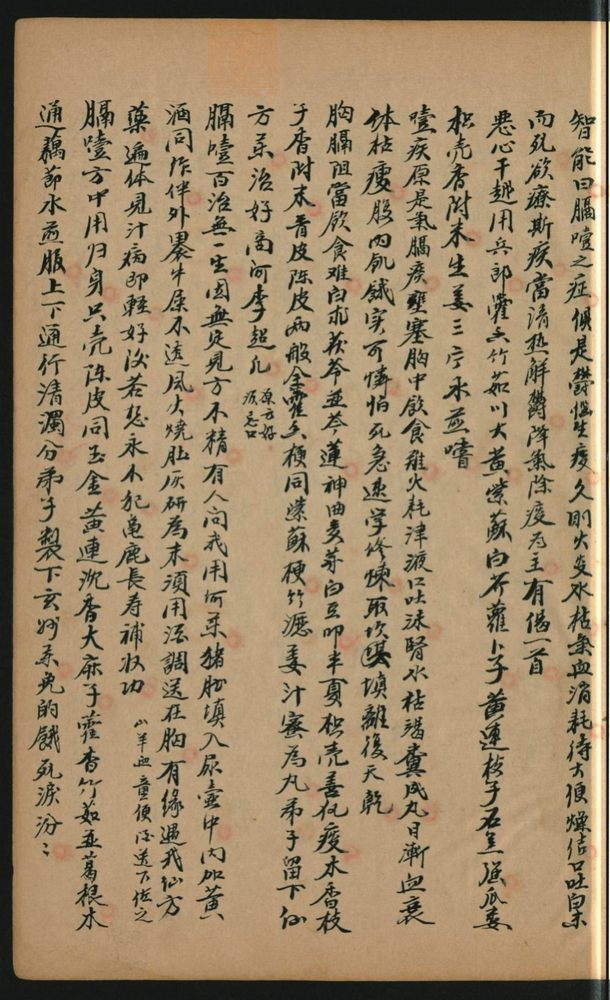 智能曰膈噎之症俱是鬱惱生痰久則火炎水枯氣血消耗待大便燥結口吐白沫
而死欲療斯疾當清热解鬱降氣除痰为主有偈一首
惡心干越用兵郎灌香竹茹川大黃紫蘇白芥蘿卜子黃連枝子石羔猴瓜蔞
枳壳香附末生姜三片水煎嗜
噎疾原是氣膈痰壅塞胸中飲食难火耗津液口吐沫腎水枯竭糞成丸日漸血衰
体枯瘦腹內飢餓实可憐怕死急速学修煉取坎填離後天乾
胸膈阻當飲食难白朮茯苓並芩蓮神曲麦芽白豆叩半夏枳壳善化痰木香枝
子香附末青皮陈皮两般全藿香梗同紫蘇梗竹瀝姜汁蜜為丸弟子留下仙
方葯治好高河李超凡
原方好
病忌口
膈噎百治無一生因無定見方不精有人问我用何葯猪肚填入尿壶中内加黃
酒同作伴外裹牛屎不透風火燒肚灰研為末須用酒調送在胸有缘遇我仙方
藥遍体見汗病即輕好後若想永不犯龜鹿長寿補收功
山羊血童便酒送下佐之
膈噎方中用归身只壳陈皮同玉金黃連沉香大麻子藿香竹茹並葛根木
通藕節水煎服上下通行清濁分弟子製下玄妙葯免的餓死淚汾〻